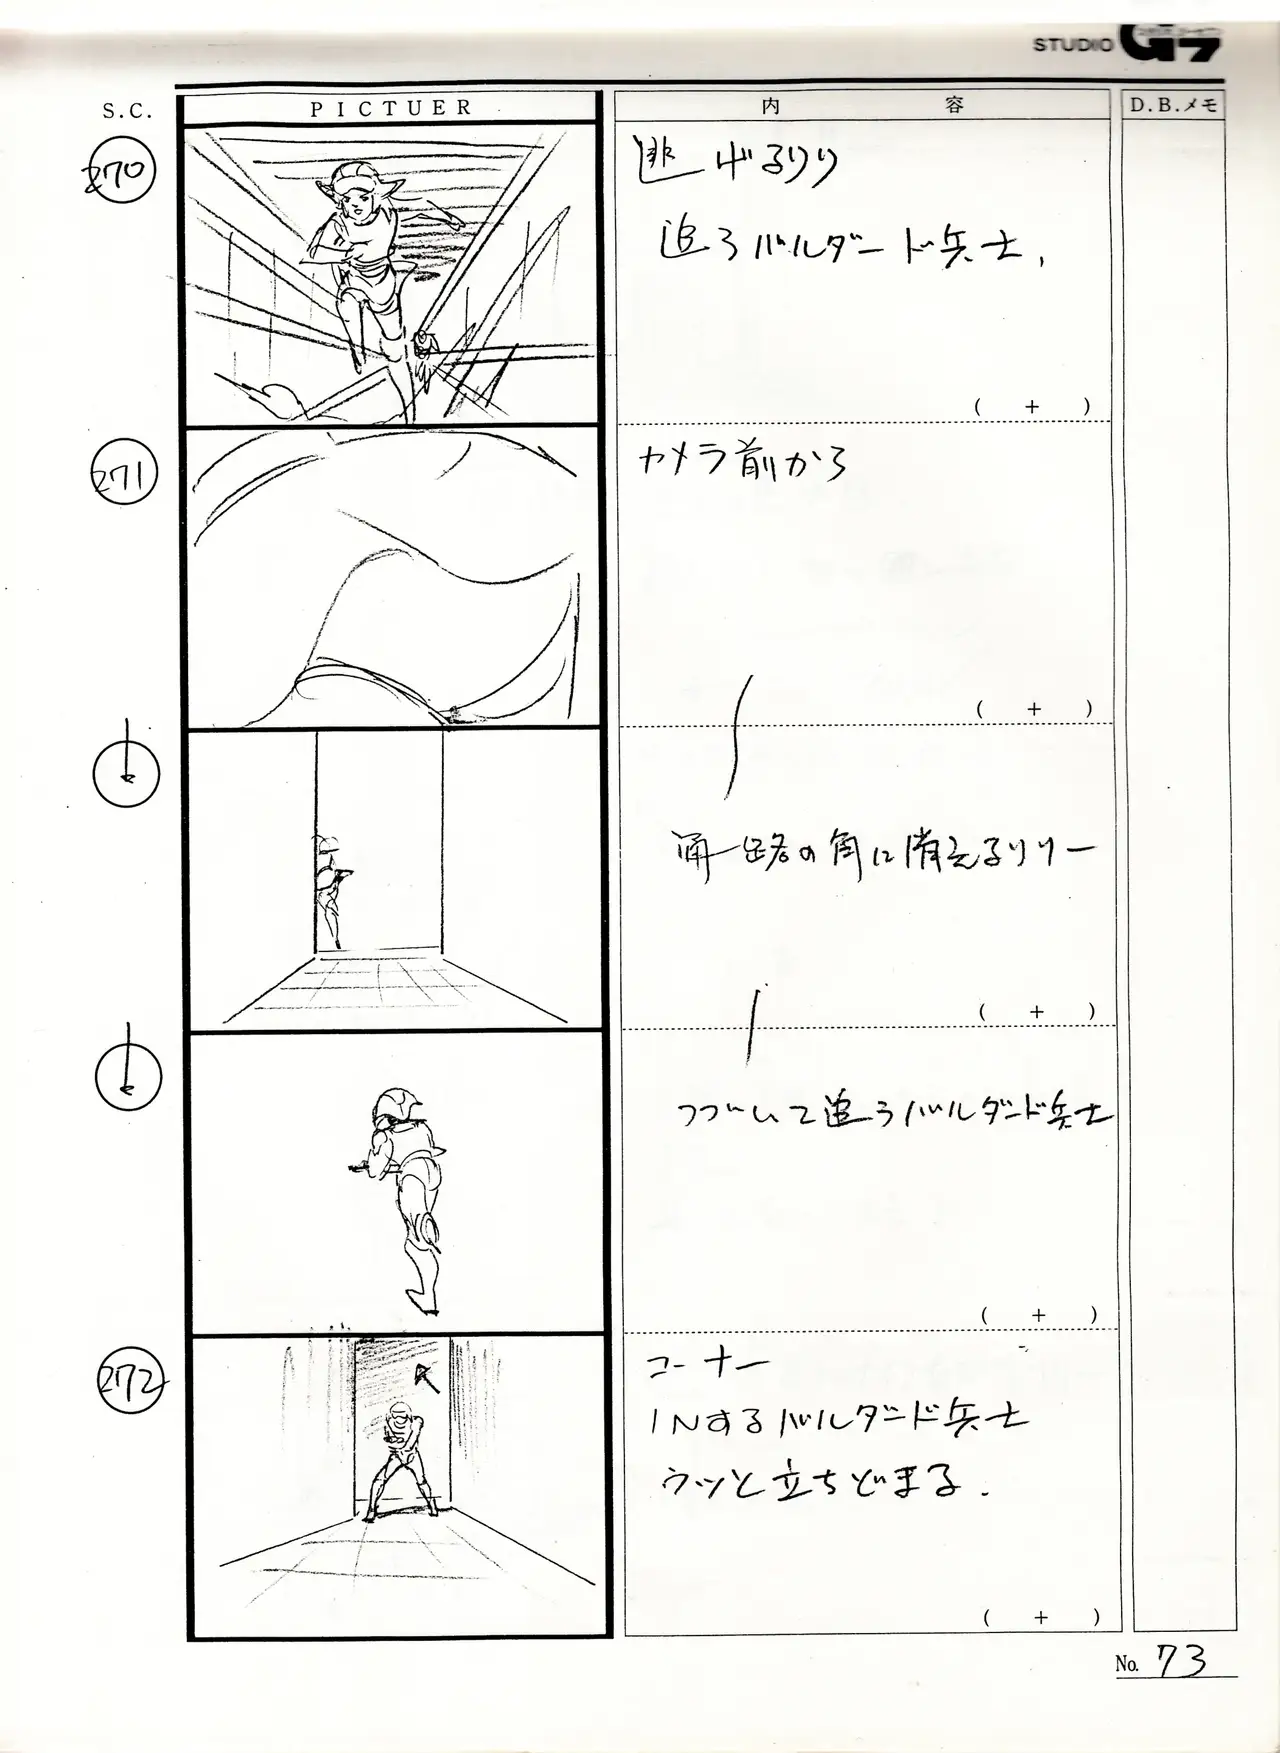 STUDIO
S.C.
PICTUER
内容
D.B.メモ
270
逃げるリリ
追うバルダード兵士.
( + )
271
カメラ前から
( + )
通路の角に消えるリリー
( + )
つづいて追うバルダード兵士
( + )
272
コーナー
INするバルダード兵士
ウッと立ちどまる.
( + )
No. 73